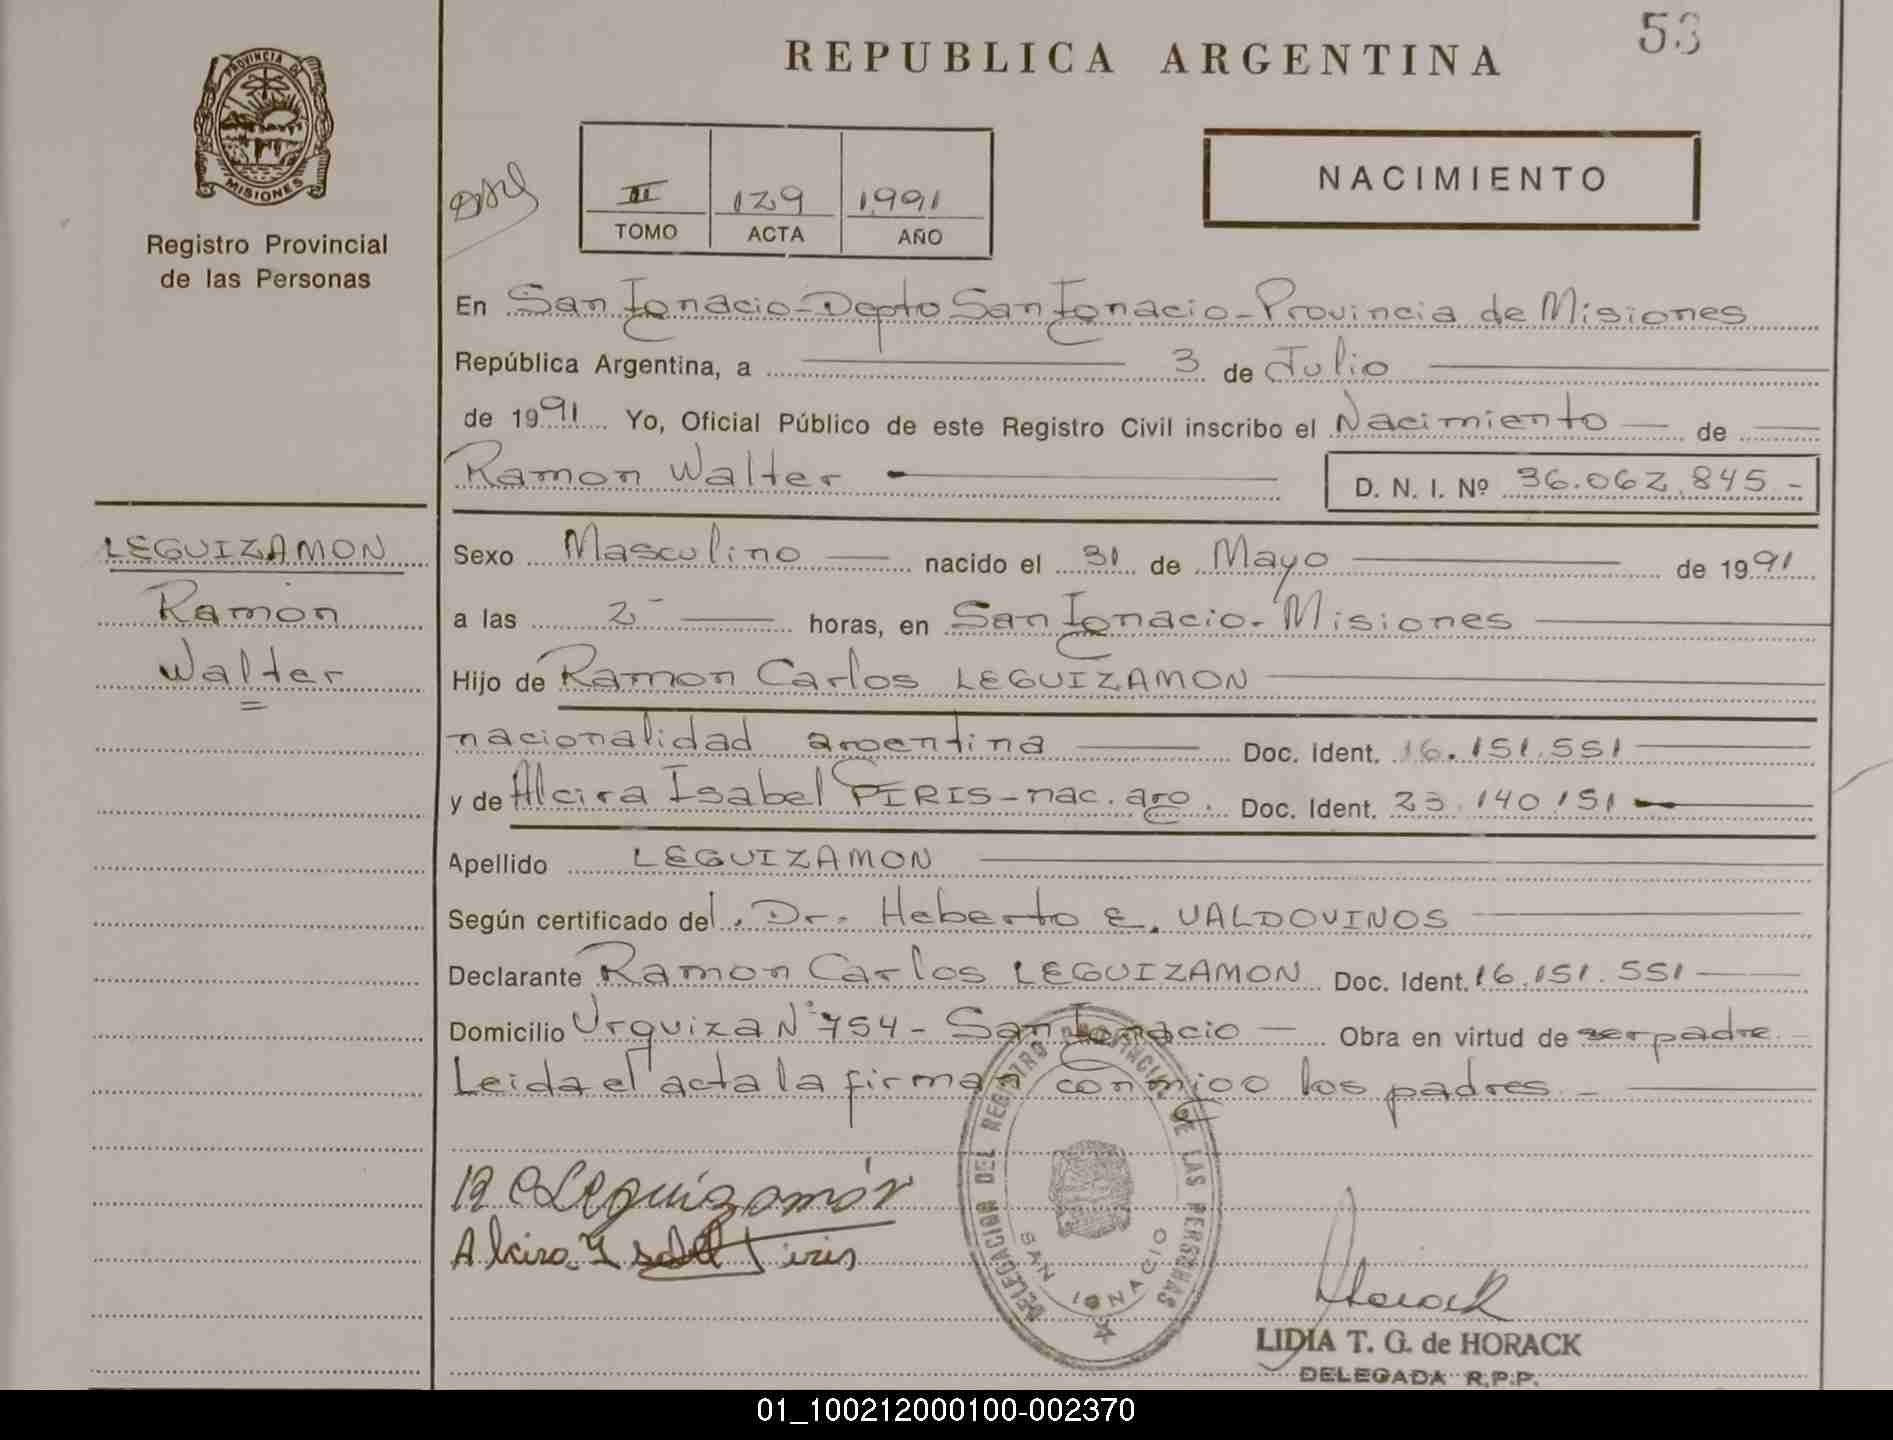 53
REPUBLICA ARGENTINA
PROVINCIA DE
MISIONES
Registro Provincial
de las Personas
III 129 1991
TOMO ACTA AÑO
NACIMIENTO
En San Ignacio-Depto San Ignacio-Provincia de Misiones
República Argentina, a 3 de Julio
de 1991 Yo, Oficial Público de este Registro Civil inscribo el Nacimiento de
Ramon Walter D. N. I. Nº 36.062.845 -
LEGUIZAMON
Ramón
Walter
Sexo Masculino nacido el 31 de Mayo de 1991
a las 2 horas, en San Ignacio-Misiones
Hijo de Ramon Carlos LEGUIZAMON
nacionalidad argentina Doc. Ident. 16.151.551
y de Alcira Isabel PIRIS-nac. arg. Doc. Ident. 23.140.151
Apellido LEGUIZAMON
Según certificado del Dr. Heberto E. VALDOVINOS
Declarante Ramon Carlos LEGUIZAMON Doc. Ident. 16.151.551
Domicilio Urquiza Nº 754 - San Ignacio Obra en virtud de ser padre
Leida el acta la firman conmigo los padres. -
R C Leguizamón
Alcira I sabel Piris
DELEGACION DEL REGISTRO PROVINCIAL DE LAS PERSONAS
SAN IGNACIO
Horack
LIDIA T. G. de HORACK
DELEGADA R.P.P.
01_100212000100-002370